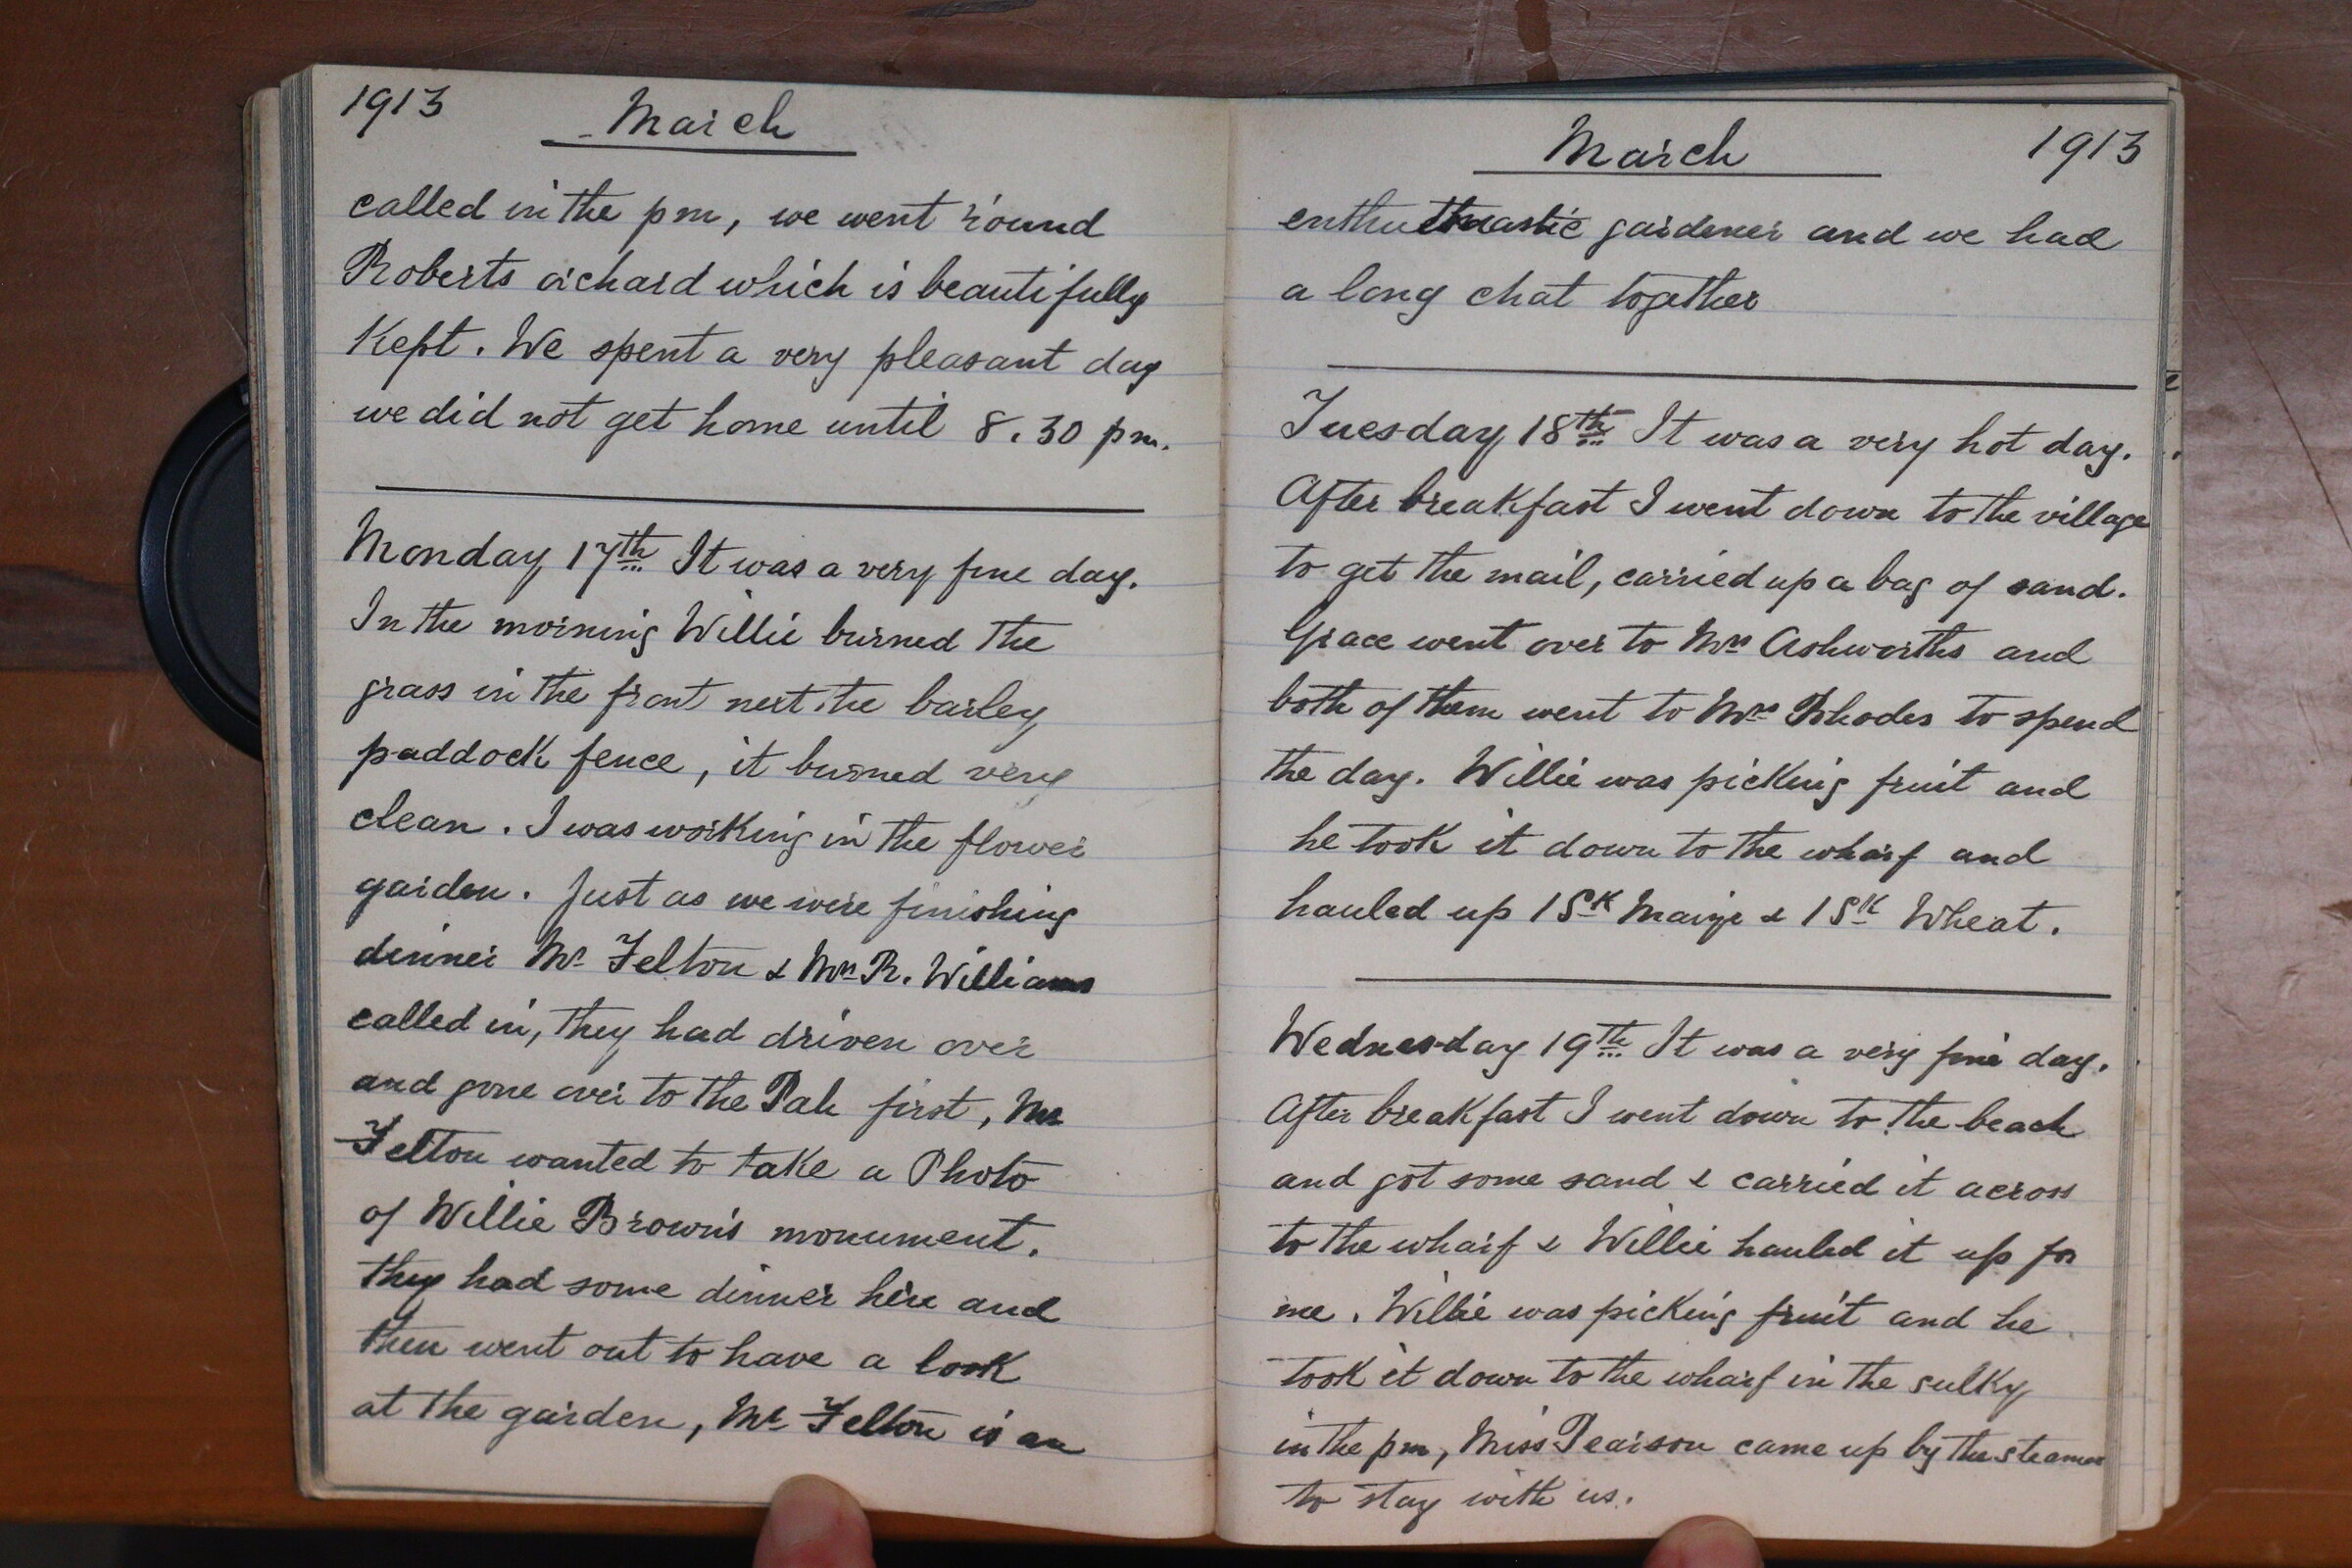 1913 March
called in the pm, we went round
Roberts orchard which is beautifully
Kept. We spent a very pleasant day
we did not get home until 8.30 pm.
Monday 17th It was a very fine day.
In the morning Willie burned the
grass in the front next the barley
paddock fence, it burned very
clean. I was working in the flower
garden. Just as we were finishing
dinner Mr Felton & Mrs R. Williams
called in, they had driven over
and gone over to the Pah first, Mr
Felton wanted to take a Photo
of Willie Brown's monument.
they had some dinner here and
then went out to have a look
at the garden, Mr Felton is an
March 1913
gardener and we had
a long chat together
Tuesday 18th It was a very hot day.
After breakfast I went down to the village
to get the mail, carried up a bag of sand.
Grace went over to Mrs Ashworths and
both of them went to Mrs Rhodes to spend
the day. Willie was picking fruit and
he took it down to the wharf and
hauled up 1 Sk Maize & 1 Sk Wheat.
Wednesday 19th It was a very fine day.
After breakfast I went down to the beach
and got some sand & carried it across
to the wharf & Willie hauled it up for
me. Willie was picking fruit and he
took it down to the wharf in the sulky
in the pm, Miss Pearson came up by the steamer
to stay with us.